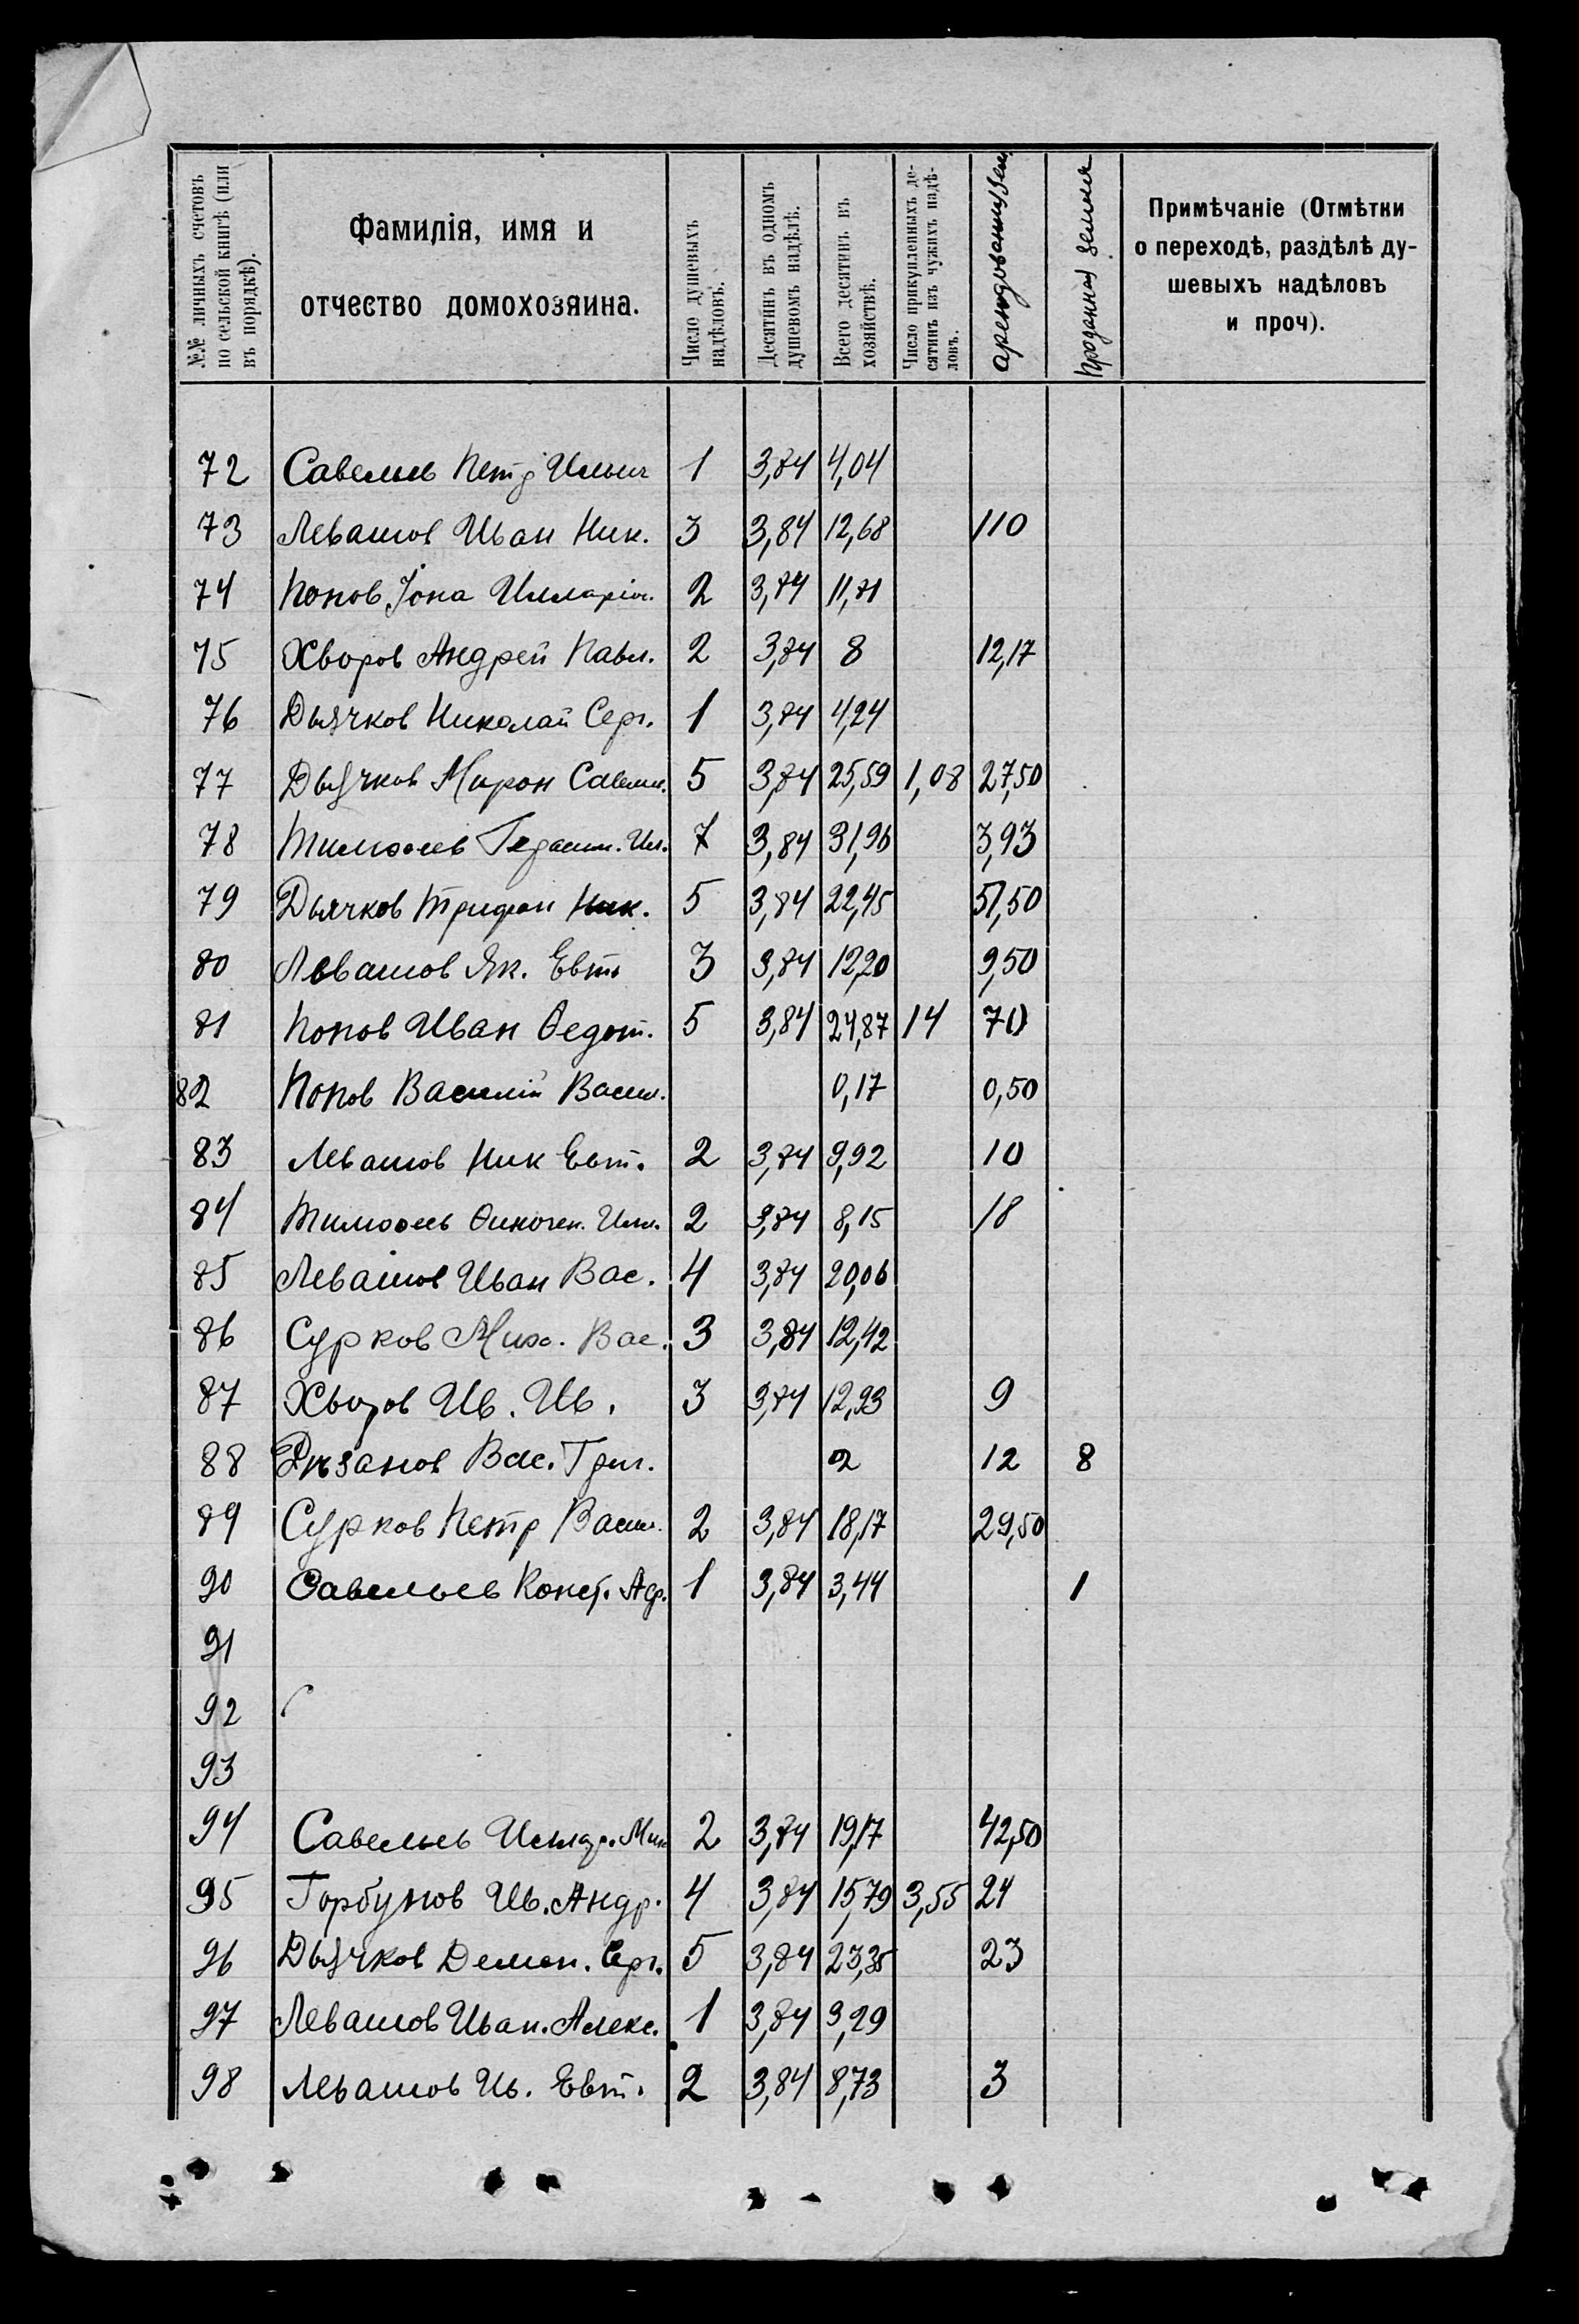 №№ личныхъ счетовъ по сельской книгѣ (или въ порядкѣ).
Фамилія, имя и отчество домохозяина.
Число душевыхъ надѣловъ.
Десятинъ въ одномъ душевомъ надѣлѣ.
Всего десятинъ въ хозяйствѣ.
Число прикупленныхъ десятинъ изъ чужихъ надѣловъ.
Проданная земля
Примѣчаніе (Отмѣтки о переходѣ, раздѣлѣ душевыхъ надѣловъ и проч).
72 Савельев Петр Ильич 1 3,84 4,04
73 Левашов Иван Ник. 3 3,84 12,68 110
74 Попов Іона Илларіон. 2 3,84 11,71
75 Хворов Андрей Павл. 2 3,84 8 12,17
76 Дьячков Николай Серг. 1 3,84 4,24
77 Дьячков Мирон Савел. 5 3,84 25,59 1,08 27,50
78 Тимофеев Герасим. Ил. 7 3,84 31,96 3,93
79 Дьячков Трифон Ник. 5 3,84 22,45 51,50
80 Левашов Як. Евт. 3 3,84 12,20 9,50
81 Попов Иван Ѳедот. 5 3,84 24,87 14 70
82 Попов Василій Васил. 0,17 0,50
83 Левашов Ник Евт. 2 3,84 9,92 10
84 Тимофеев Финоген. Илл. 2 3,84 8,15 18
85 Левашов Иван Вас. 4 3,84 20,06
86 Сурков Мих. Вас. 3 3,84 12,42
87 Хворов Ив. Ив. 3 3,84 12,93 9
88 Рѣзанов Вас. Григ. 2 12 8
89 Сурков Петр Васил. 2 3,84 18,17 29,50
90 Савельев Конст. Адр. 1 3,84 3,44 1
91
92
93
94 Савельев 2 3,84 19,17 42,50
95 Горбунов Ив. Андр. 4 3,84 15,79 3,55 24
96 Дьячков Демен. Серг. 5 3,84 23,35 23
97 Левашов Иван. Алекс. 1 3,84 3,29
98 Левашов Ив. Евт. 2 3,84 8,73 3